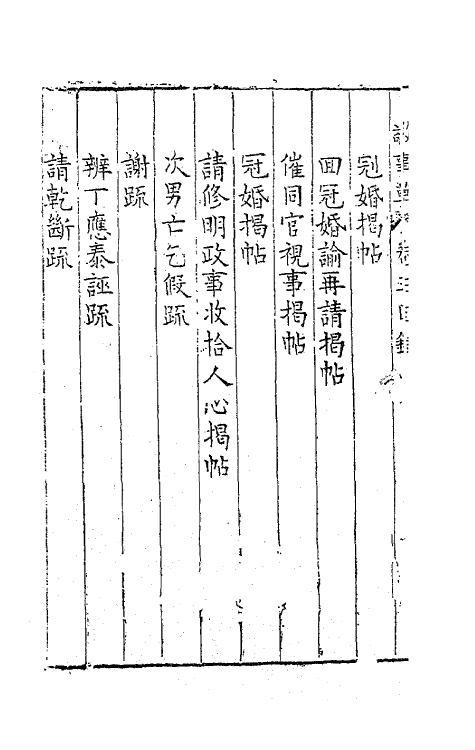 冠婚揭帖
回冠婚諭再請揭帖
催同官視事揭帖
冠婚揭帖
請修明政事收拾人心揭帖
次男亡乞假䟽
謝䟽
辨丁應泰誣䟽
請乾斷䟽